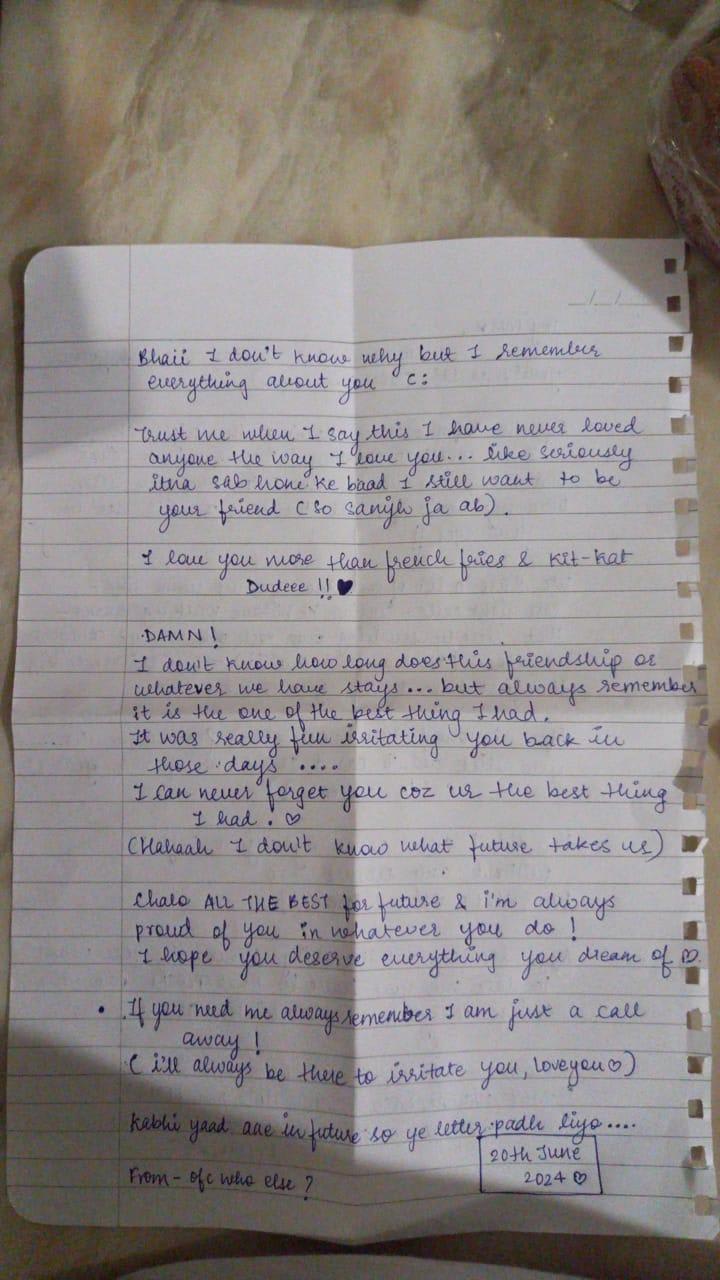 __/__/__
Bhaii I don't know why but I remember
everything about you C:
Trust me when I say this I have never loved
anyone the way I love you... like seriously
itna sab hone ke baad I still want to be
your friend (so samjh ja ab).
I love you more than french fries & kit-kat
Dudeee !! ♥
DAMN!
I don't know how long does this friendship or
whatever we have stays... but always remember
it is the one of the best thing I had.
It was really fun irritating you back in
those days ....
I can never forget you coz ur the best thing
I had. ♡
(Hahaah I don't know what future takes us)
Chalo ALL THE BEST for future & i'm always
proud of you in whatever you do!
I hope you deserve everything you dream of ♡.
• If you need me always remember I am just a call
away!
(i'll always be there to irritate you, loveyou♡)
Kabhi yaad aae in future so ye letter padh liyo....
20th June
2024 ♡
From - ofc who else?